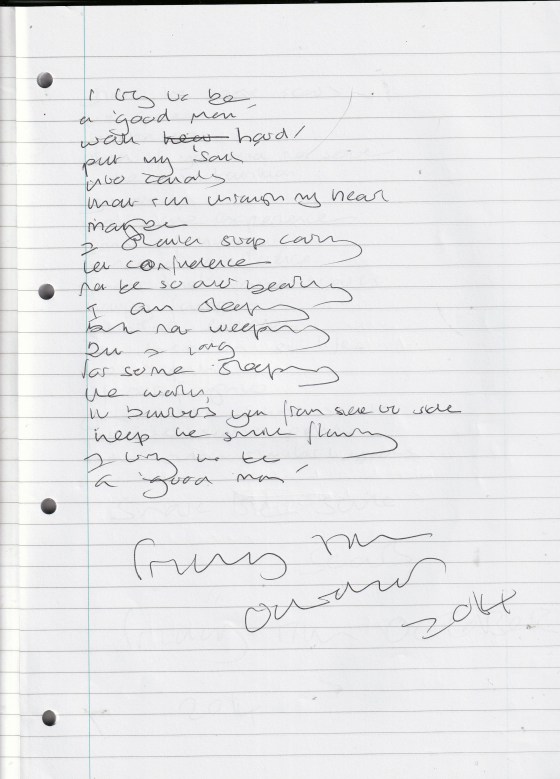 I try to be
a 'good man'
with hear hard/
put my 'soul
into canals
that run through my heart
maybe
I should stop caring
let confidence
not be so over bearing
I am sleeping
but not weeping
but I long
for some sleeping
the water,
it bounces you from side to side
keep the smile flowing
I try to be
a 'good man'
2014